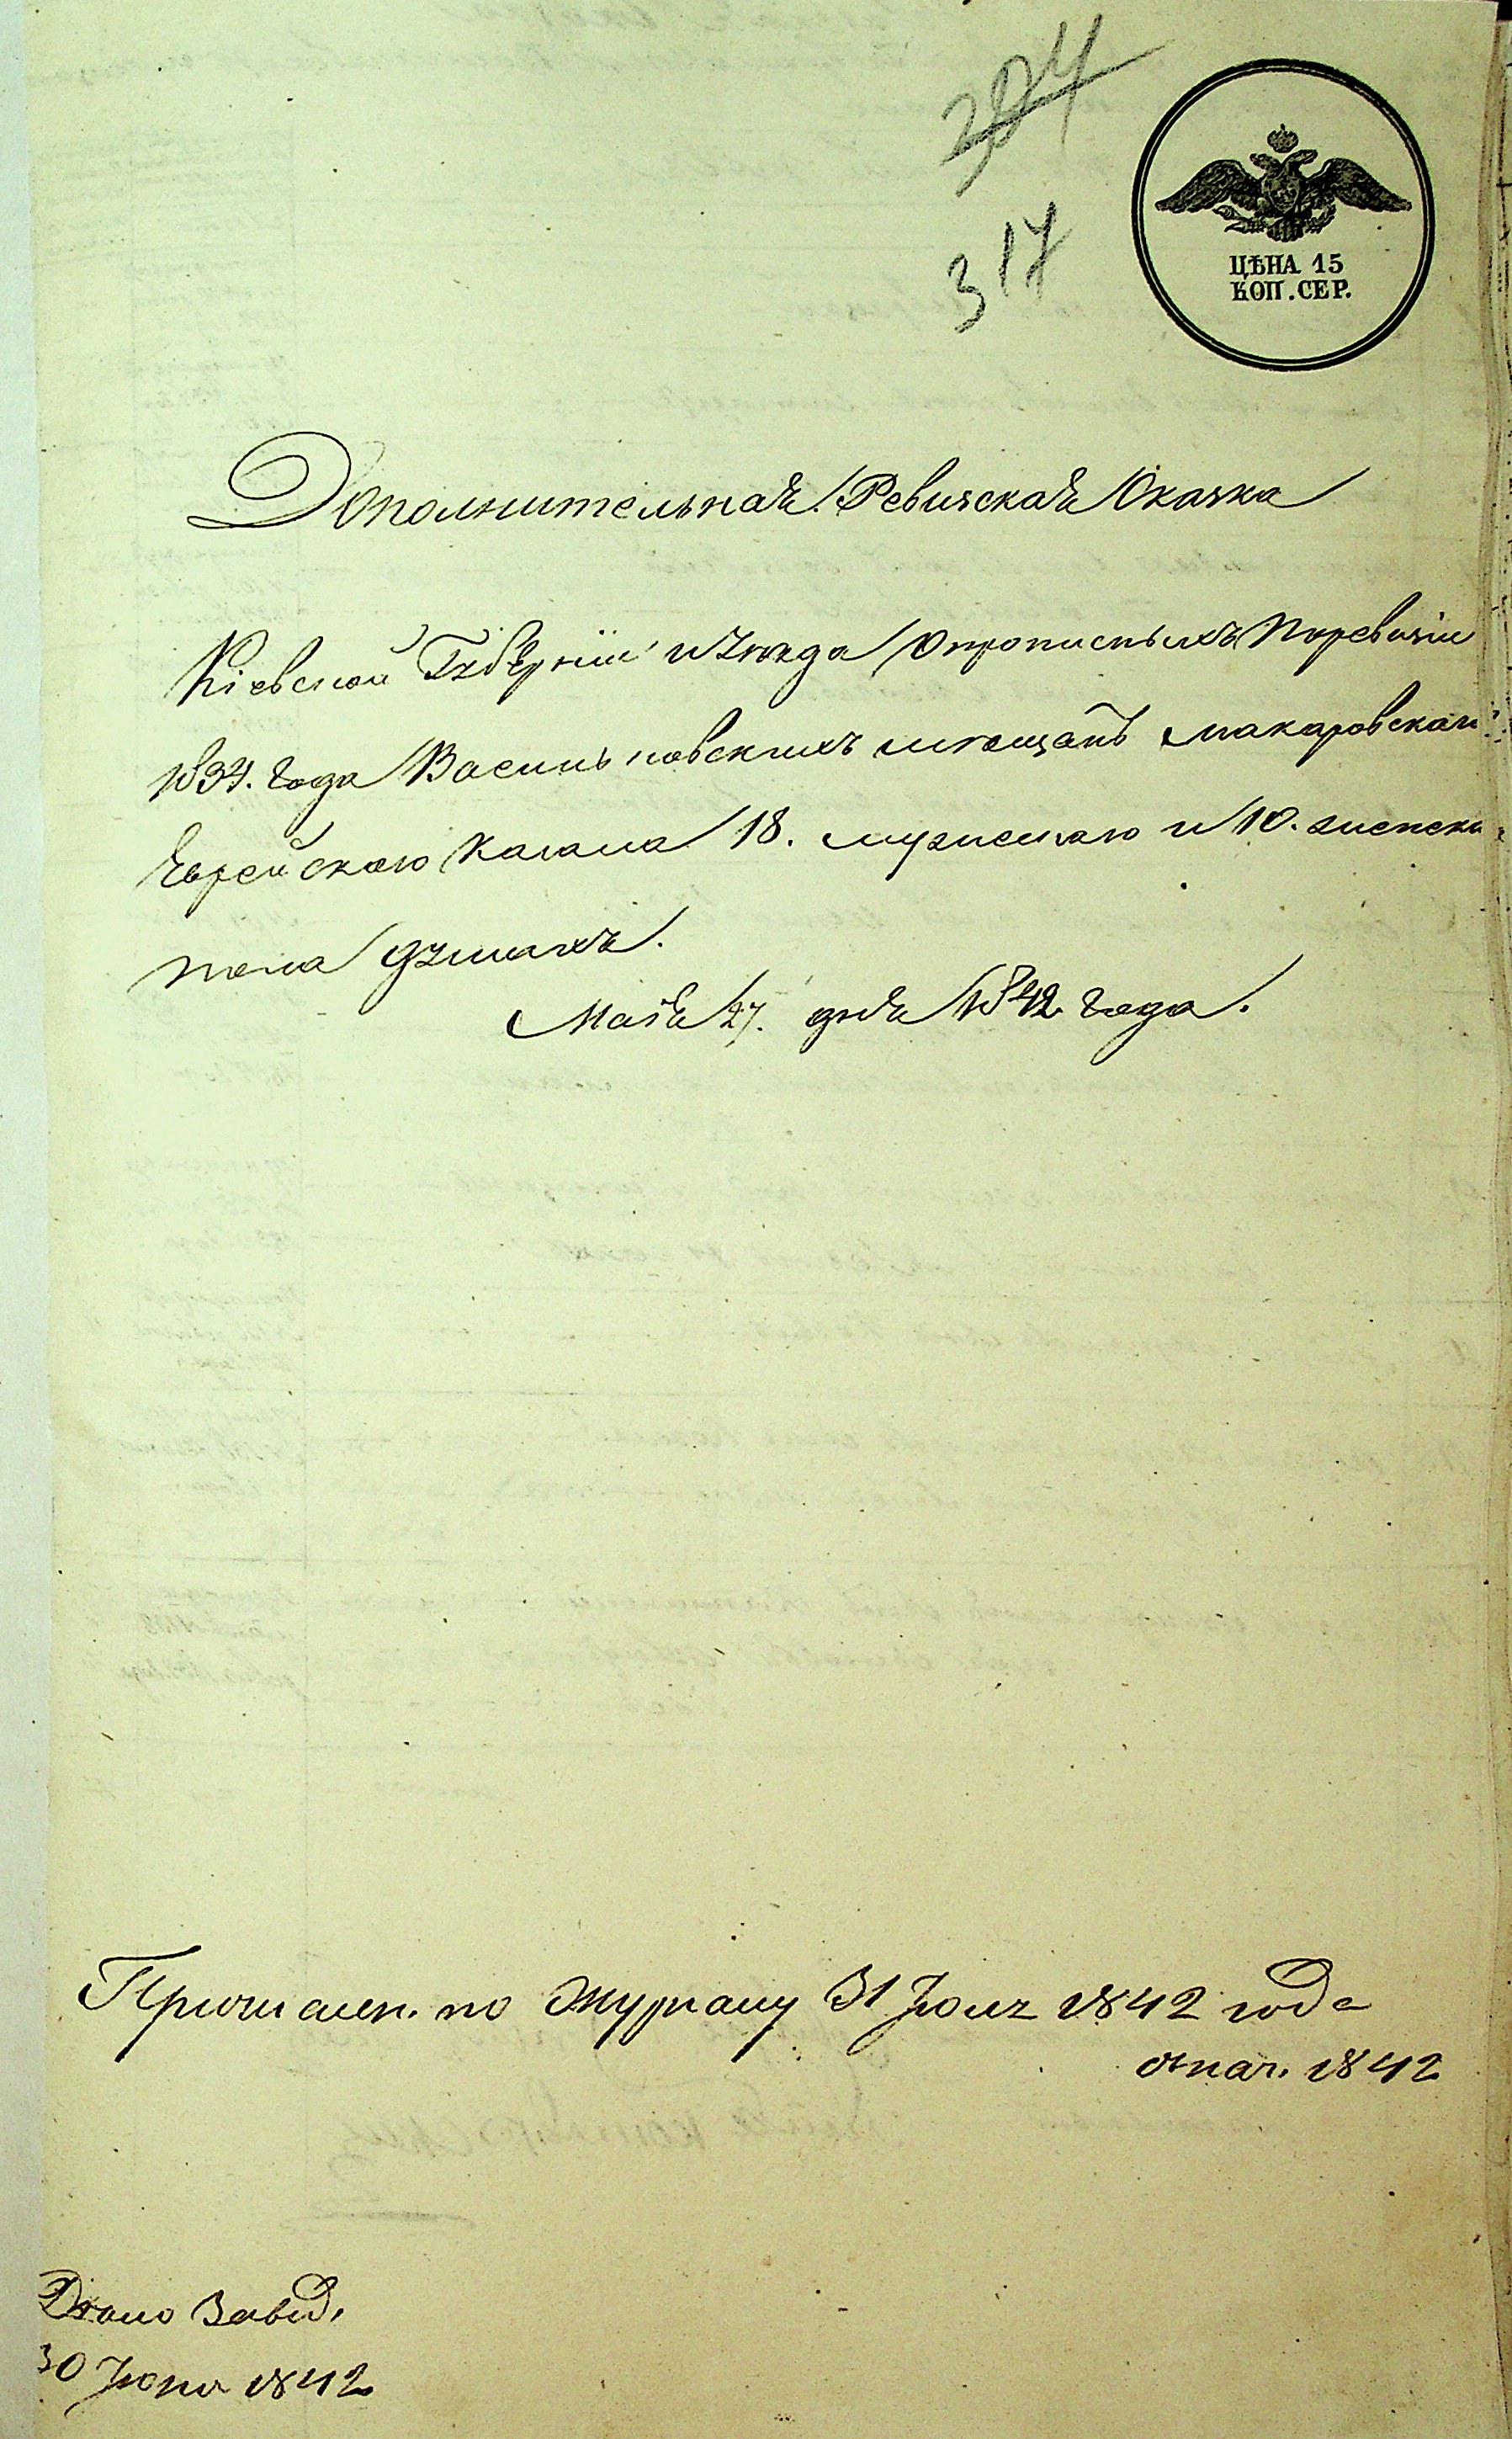 324
317
ЦѢНА 15
КОП. СЕР.
Дополнительная Ревизская Сказка
Кіевской Губерніи и Уезда Опрописныхъ поревизіи
1834. года Васильковскихъ мещанъ макаровскаго
Еврейскаго Кагала 18. мужескаго и 10. женска
пола душахъ.
Маія 27. дня 1842 года.
по журналу 31 Іюля 1842 года
1842
Дело Завед.
30 Іюня 1842